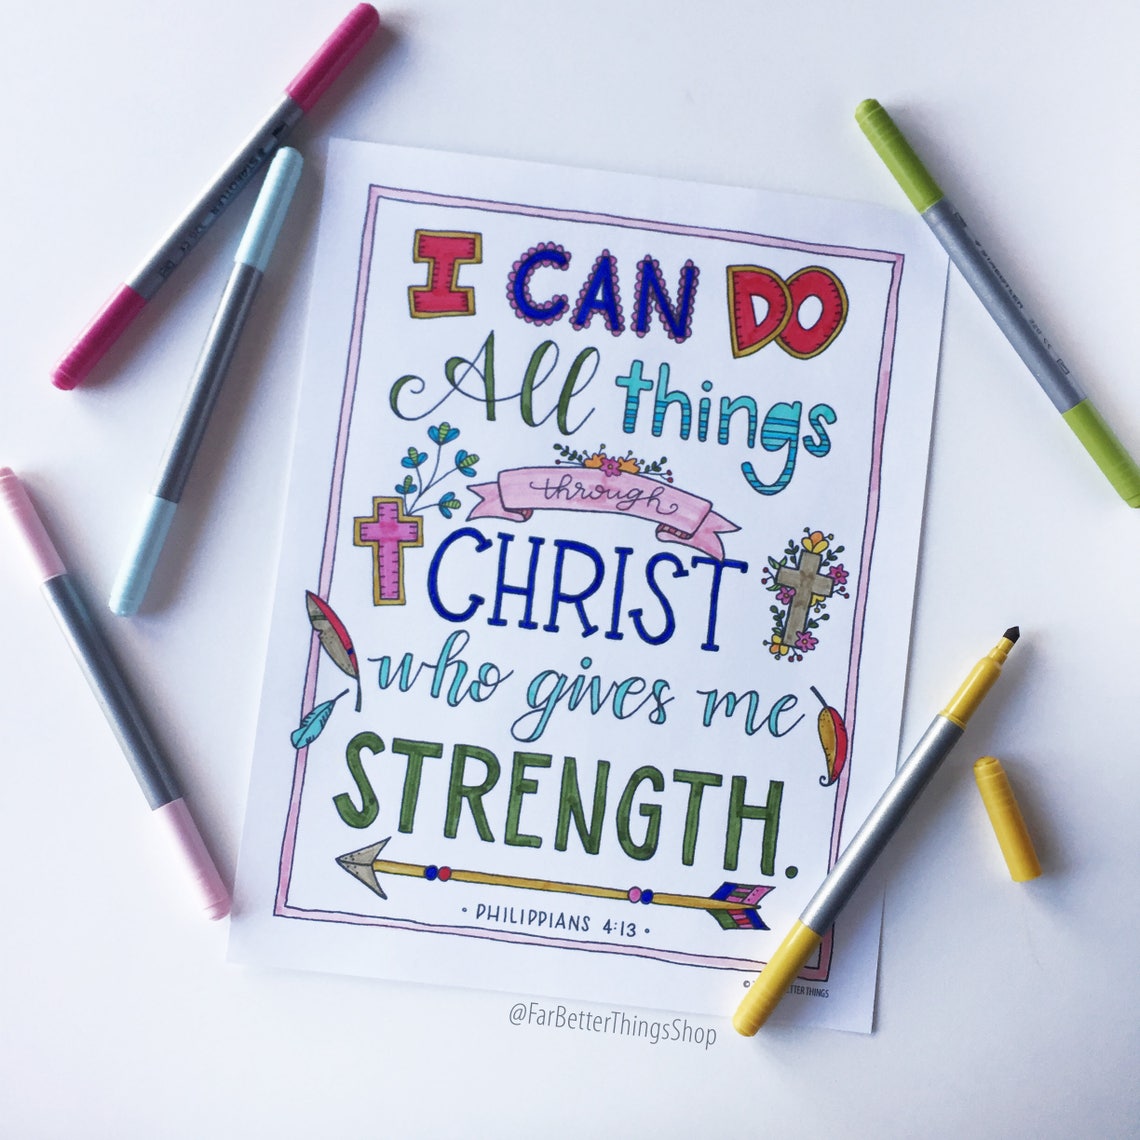 I CAN DO
All things
through
CHRIST
who gives me
STRENGTH.
• PHILIPPIANS 4:13 •
© BETTER THINGS
@FarBetterThingsShop
STAEDTLER